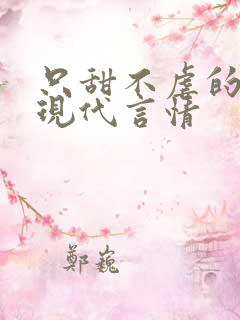 只甜不虐的
現代言情
鄭巍